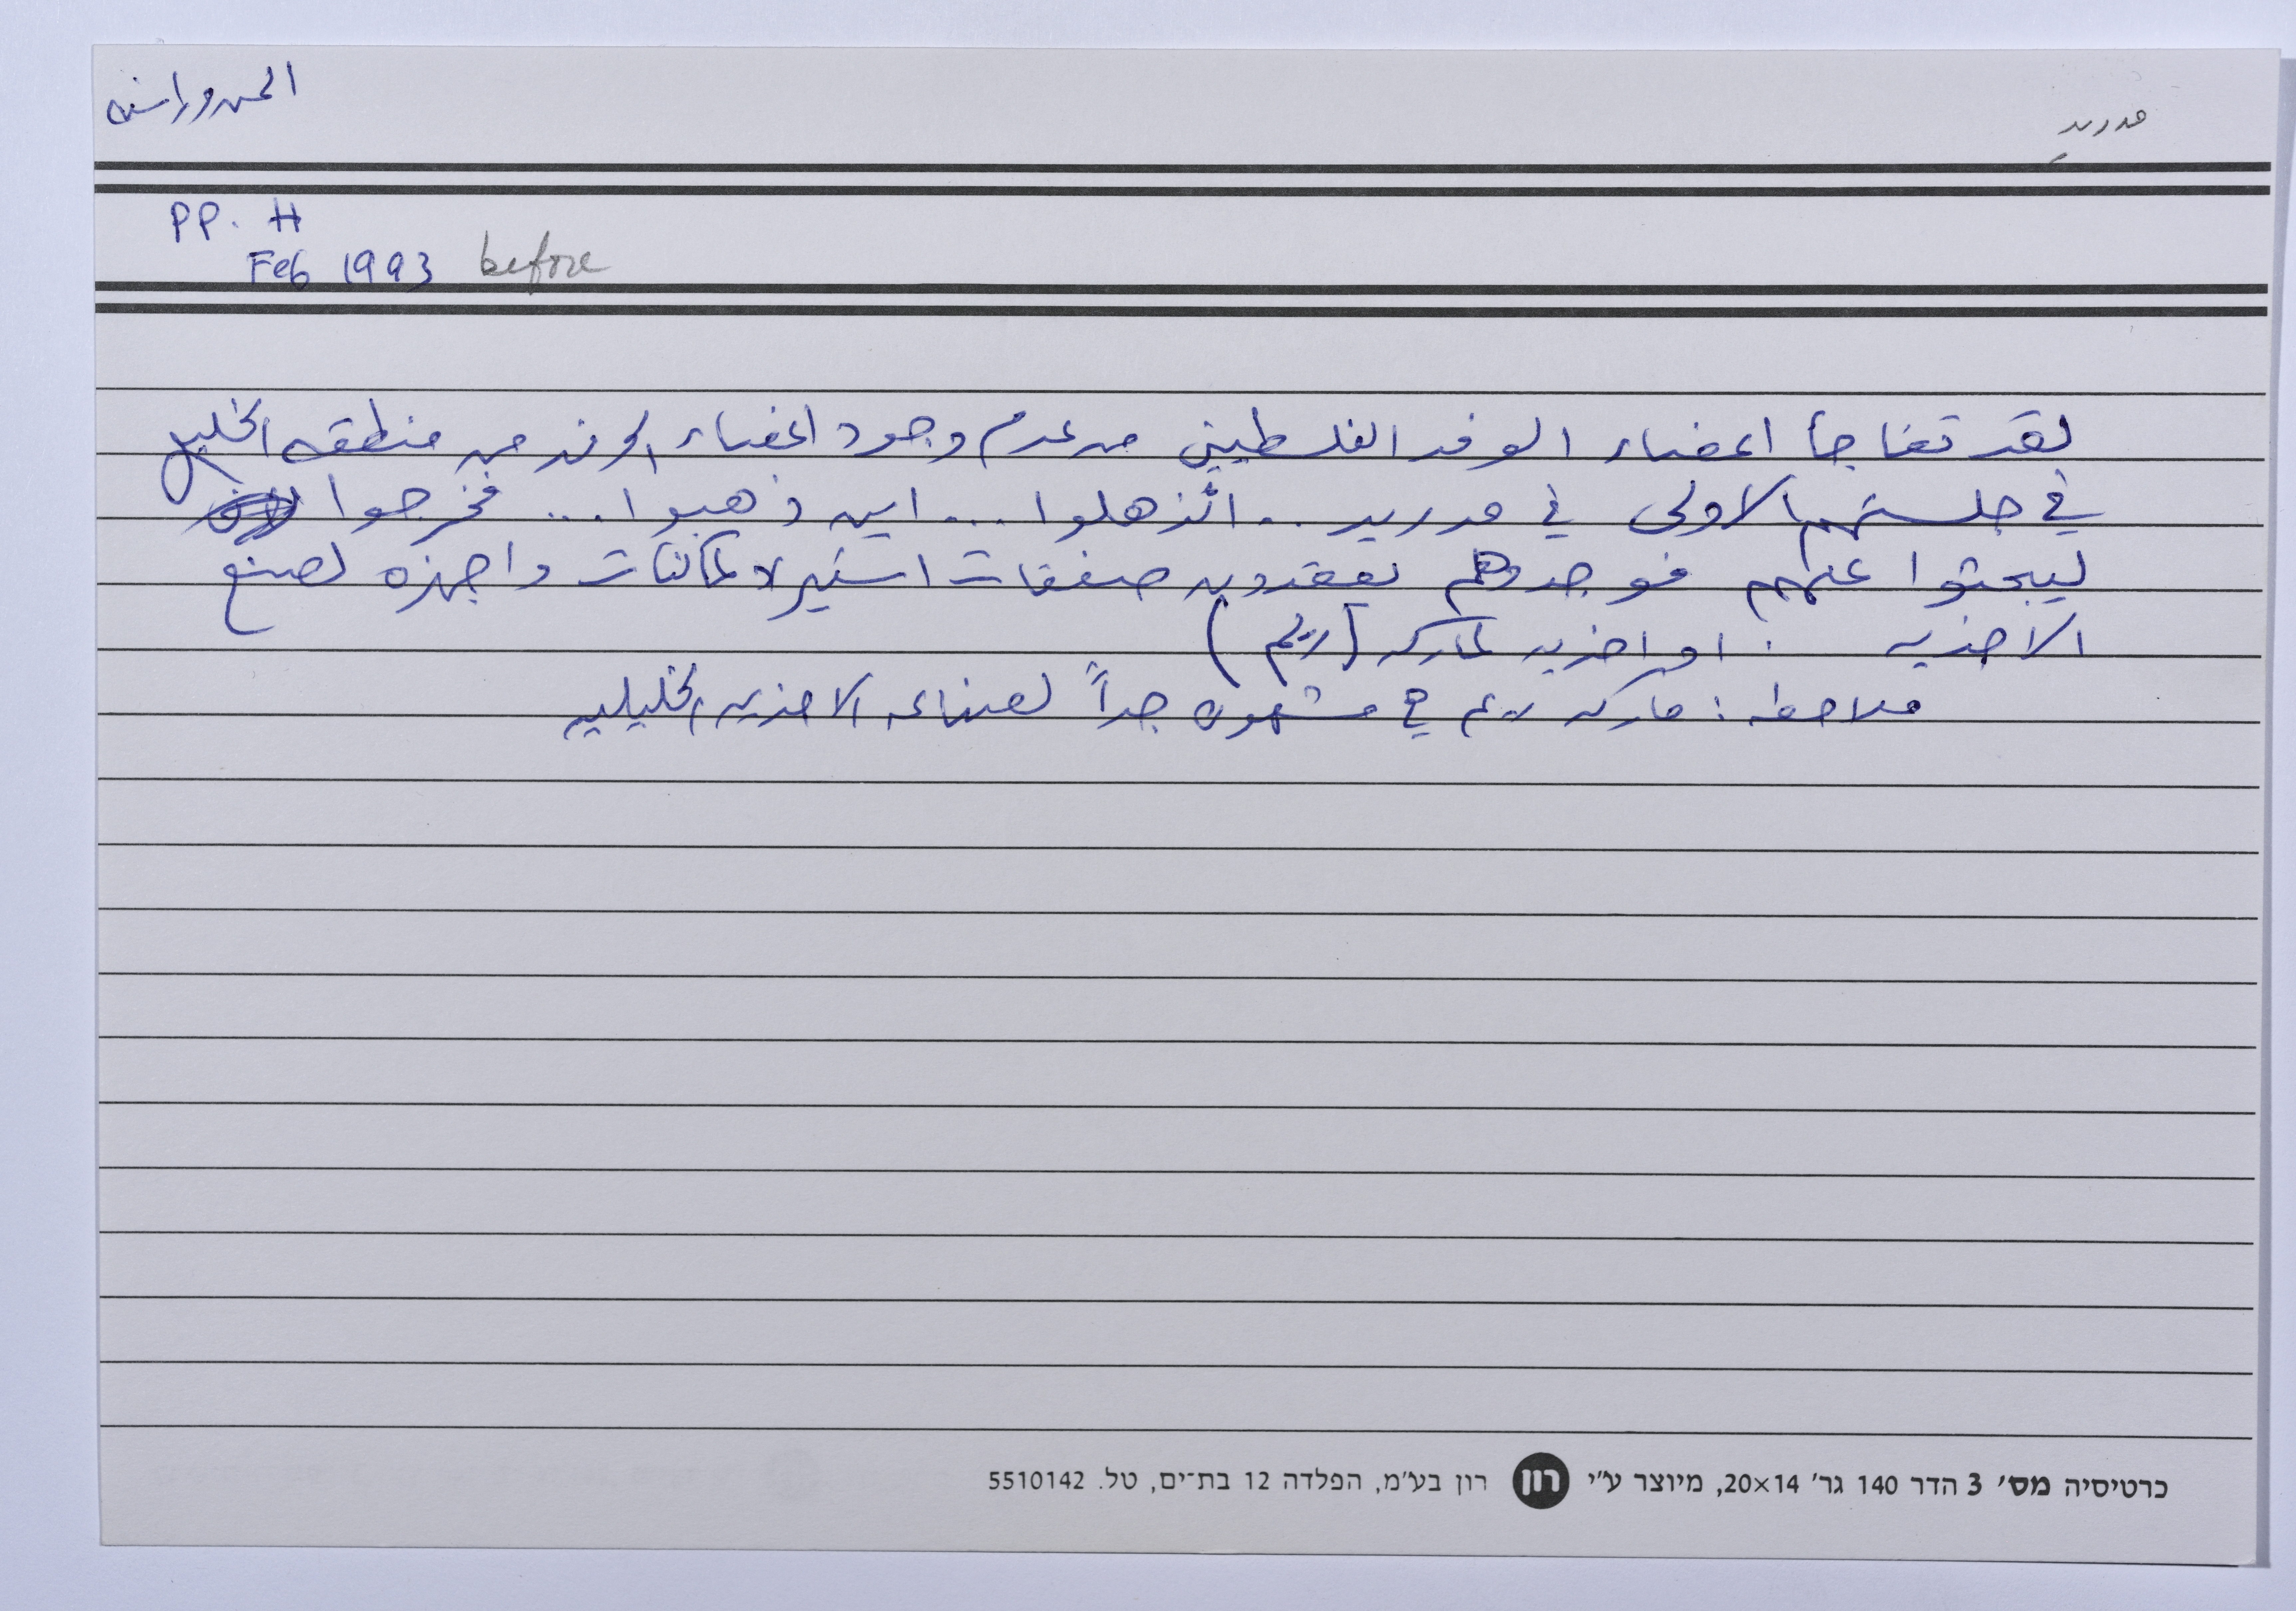 مدريد
PP. H
Feb 1993 before
لقد تفاجأ اعضاء الوفد الفلسطيني من عدم وجود اعضاء الوفد من منطقه الخليل
في جلستهم الاولى في مدريد .. انذهلوا ... اين ذهبوا ... فخرجوا
ليبحثوا عنهم فوجدوهم يعقدون صفقات استيراد ماكنات واجهزه لصنع
الاحذيه . او احذيه ماركه (ريم)
ملاحظه : ماركه ريم هي مشهوره جداً لصناعه الاحذيه الخليليه
כרטיסיה מס׳ 3 הדר 140 גר׳ 20×14, מיוצר ע״י רון רון בע״מ, הפלדה 12 בת־ים, טל. 5510142